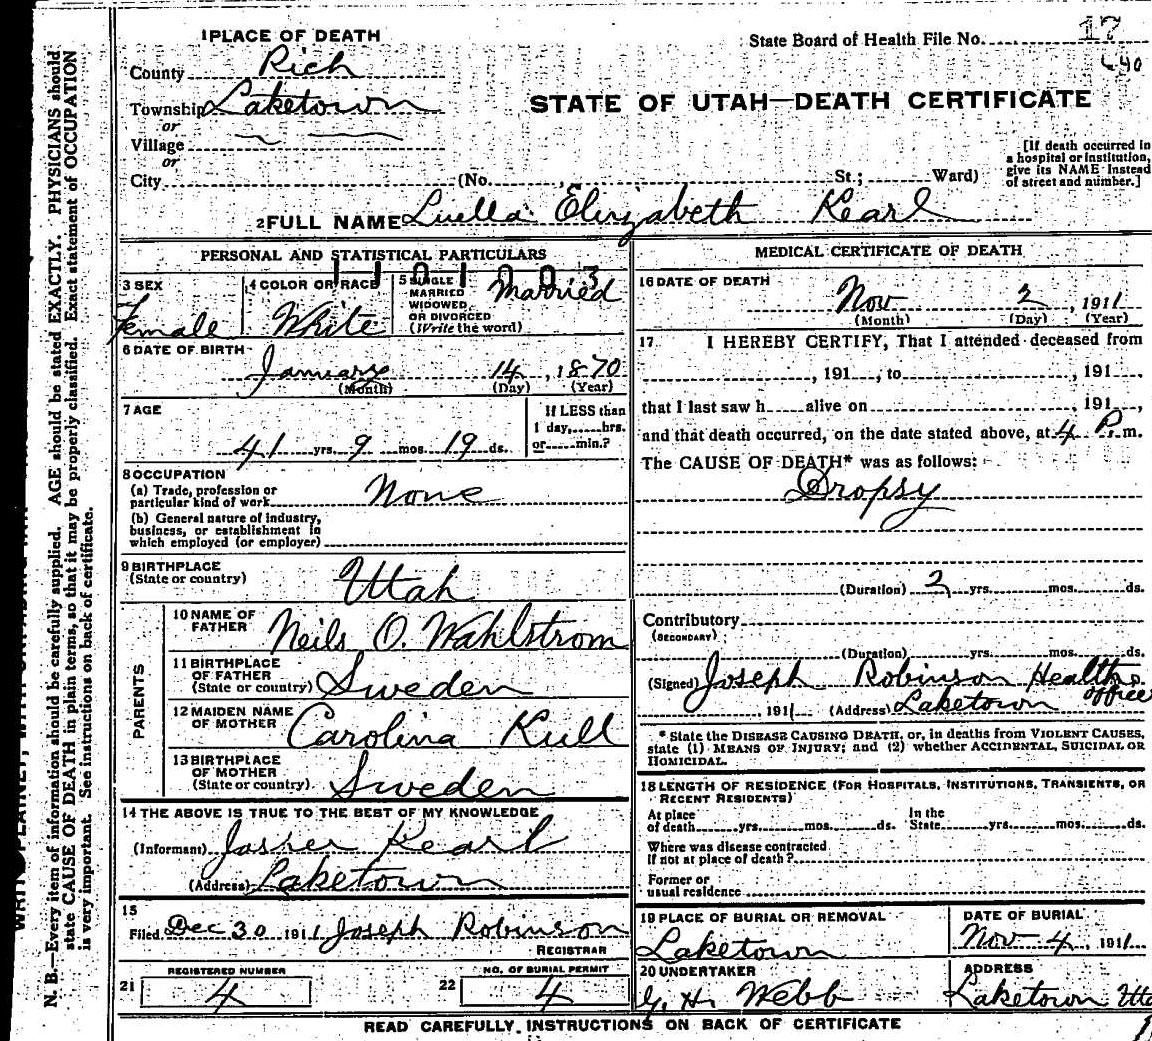 1 PLACE OF DEATH
County Rich
Township Laketown
or
Village
or
City (No. St.; Ward)
State Board of Health File No. 17
STATE OF UTAH—DEATH CERTIFICATE
[If death occurred in
a hospital or institution,
give its NAME instead
of street and number.]
2 FULL NAME Luella Elizabeth Kearl
PERSONAL AND STATISTICAL PARTICULARS
3 SEX
Female
4 COLOR OR RACE
White
5 SINGLE
MARRIED
WIDOWED
OR DIVORCED
(Write the word)
Married
6 DATE OF BIRTH
January 14, 1870
(Month) (Day) (Year)
7 AGE
41 yrs. 9 mos. 19 ds.
If LESS than
1 day,.....hrs.
or.....min.?
8 OCCUPATION
(a) Trade, profession or
particular kind of work None
(b) General nature of industry,
business, or establishment in
which employed (or employer)
9 BIRTHPLACE
(State or country)
Utah
PARENTS
10 NAME OF
FATHER
Neils O. Wahlstrom
11 BIRTHPLACE
OF FATHER
(State or country) Sweden
12 MAIDEN NAME
OF MOTHER
Carolina Kull
13 BIRTHPLACE
OF MOTHER
(State or country) Sweden
14 THE ABOVE IS TRUE TO THE BEST OF MY KNOWLEDGE
(Informant) Jasher Kearl
(Address) Laketown
15
Filed Dec 30 1911 Joseph Robinson
REGISTRAR
21
REGISTERED NUMBER
4
22
NO. OF BURIAL PERMIT
4
MEDICAL CERTIFICATE OF DEATH
16 DATE OF DEATH
Nov 2, 1911
(Month) (Day) (Year)
17 I HEREBY CERTIFY, That I attended deceased from
, 191 , to , 191 ,
that I last saw h alive on , 191 ,
and that death occurred, on the date stated above, at 4 P. m.
The CAUSE OF DEATH* was as follows:
Dropsy
(Duration) 2 yrs. mos. ds.
Contributory
(SECONDARY)
(Duration) yrs. mos. ds.
(Signed) Joseph Robinson Health
officer
, 1911 (Address) Laketown
* State the DISEASE CAUSING DEATH, or, in deaths from VIOLENT CAUSES,
state (1) MEANS OF INJURY; and (2) whether ACCIDENTAL, SUICIDAL OR
HOMICIDAL.
18 LENGTH OF RESIDENCE (FOR HOSPITALS, INSTITUTIONS, TRANSIENTS, OR
RECENT RESIDENTS)
At place
of death yrs. mos. ds.
In the
State yrs. mos. ds.
Where was disease contracted
if not at place of death?
Former or
usual residence
19 PLACE OF BURIAL OR REMOVAL
Laketown
DATE OF BURIAL
Nov 4, 1911
20 UNDERTAKER
G. H. Webb
ADDRESS
Laketown Uta
READ CAREFULLY INSTRUCTIONS ON BACK OF CERTIFICATE
N. B.—Every item of information should be carefully supplied. AGE should be stated EXACTLY. PHYSICIANS should
state CAUSE OF DEATH in plain terms, so that it may be properly classified. Exact statement of OCCUPATION
is very important. See instructions on back of certificate.